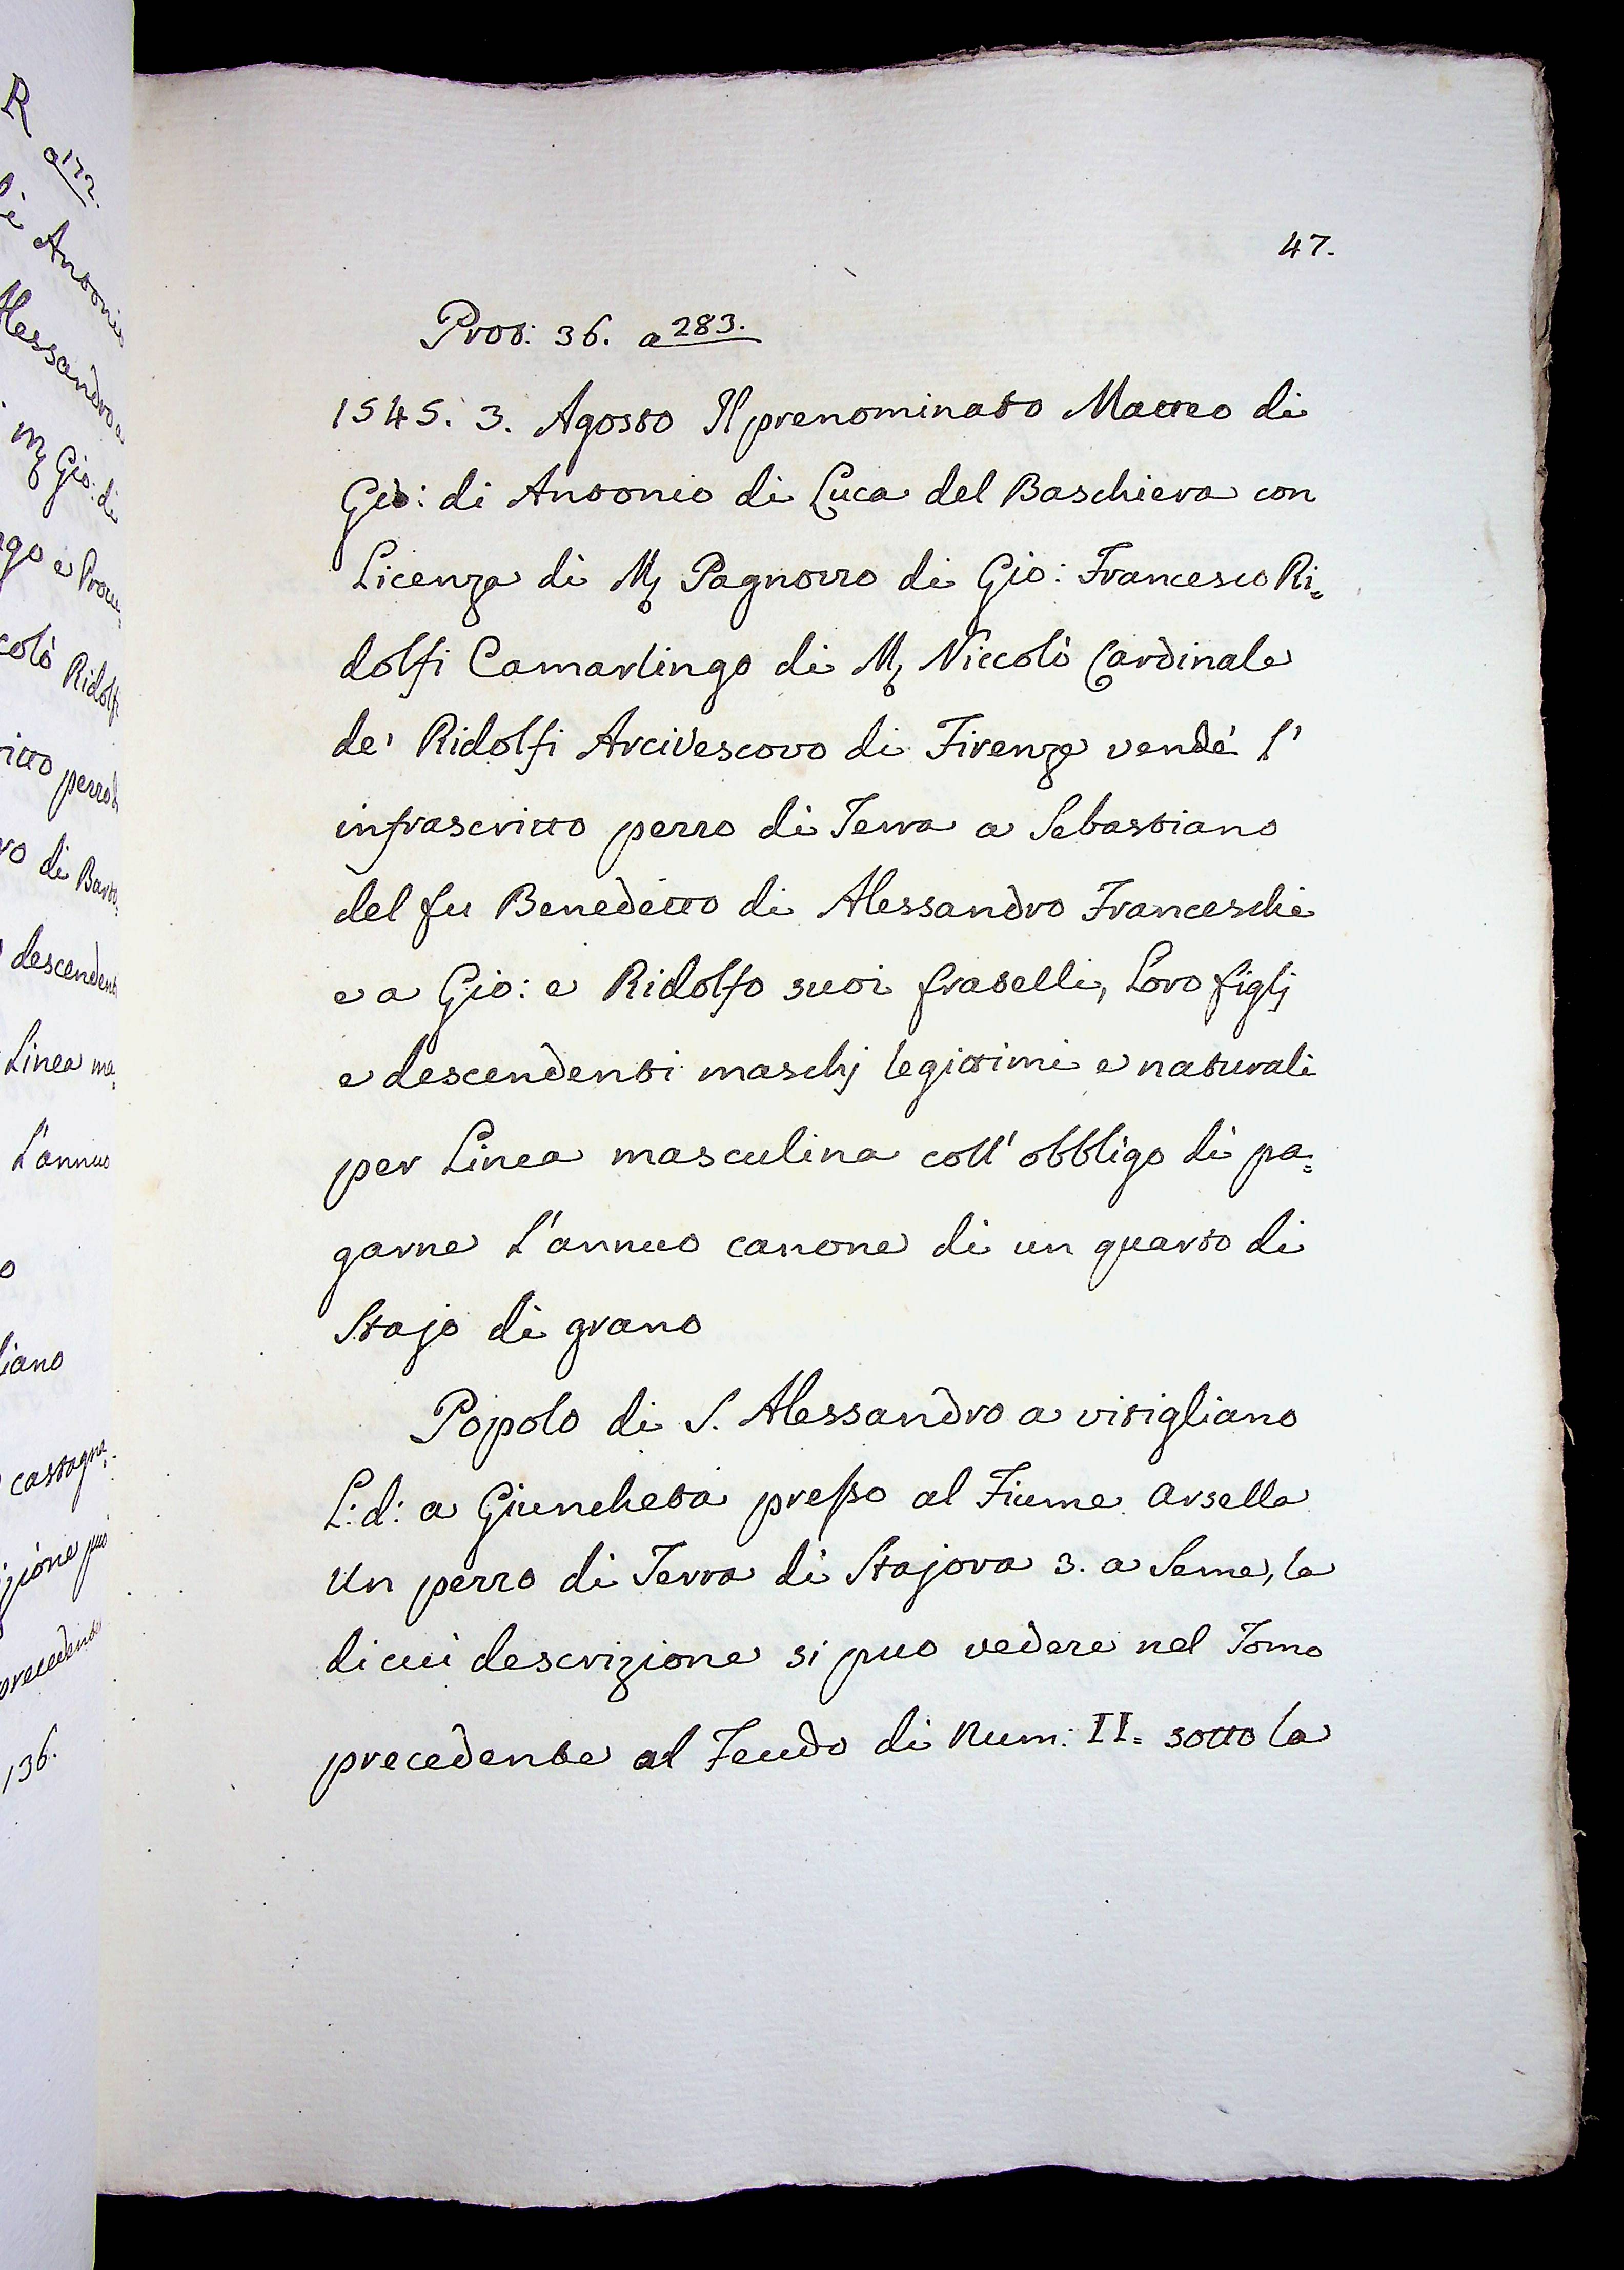 47.
Prot: 36. a 283.
1545. 3. Agosto Il prenominato Matteo di
Gio: di Antonio di Luca del Baschiera con
Licenza di M. Pagnozzo di Gio: Francesco Ri=
dolfi Camarlingo di M. Niccolò Cardinale
de' Ridolfi Arcivescovo di Firenze vendé l'
infrascritto pezzo di Terra a Sebastiano
del fu Benedetto di Alessandro Franceschi
e a Gio: e Ridolfo suoi fratelli, Loro figlj
e descendenti maschj legittimi e naturali
per Linea masculina coll' obbligo di pa=
garne L'annuo canone di un quarto di
Stajo di grano
Popolo di S. Alessandro a vitigliano
L: d: a Giuncheta presso al Fiume Arsella
Un pezzo di Terra di Stajora 3. a Seme, la
di cui descrizione si puo vedere nel Tomo
precedente al Feudo di Num: II= sotto la
R
a 172.
di Antonio
Alessandro a
M. Gio: di
colò Ridolfi
ritto
di Barto=
descendenti
Linea ma=
L'annuo
liano
castagn
zione può
precedente
136.